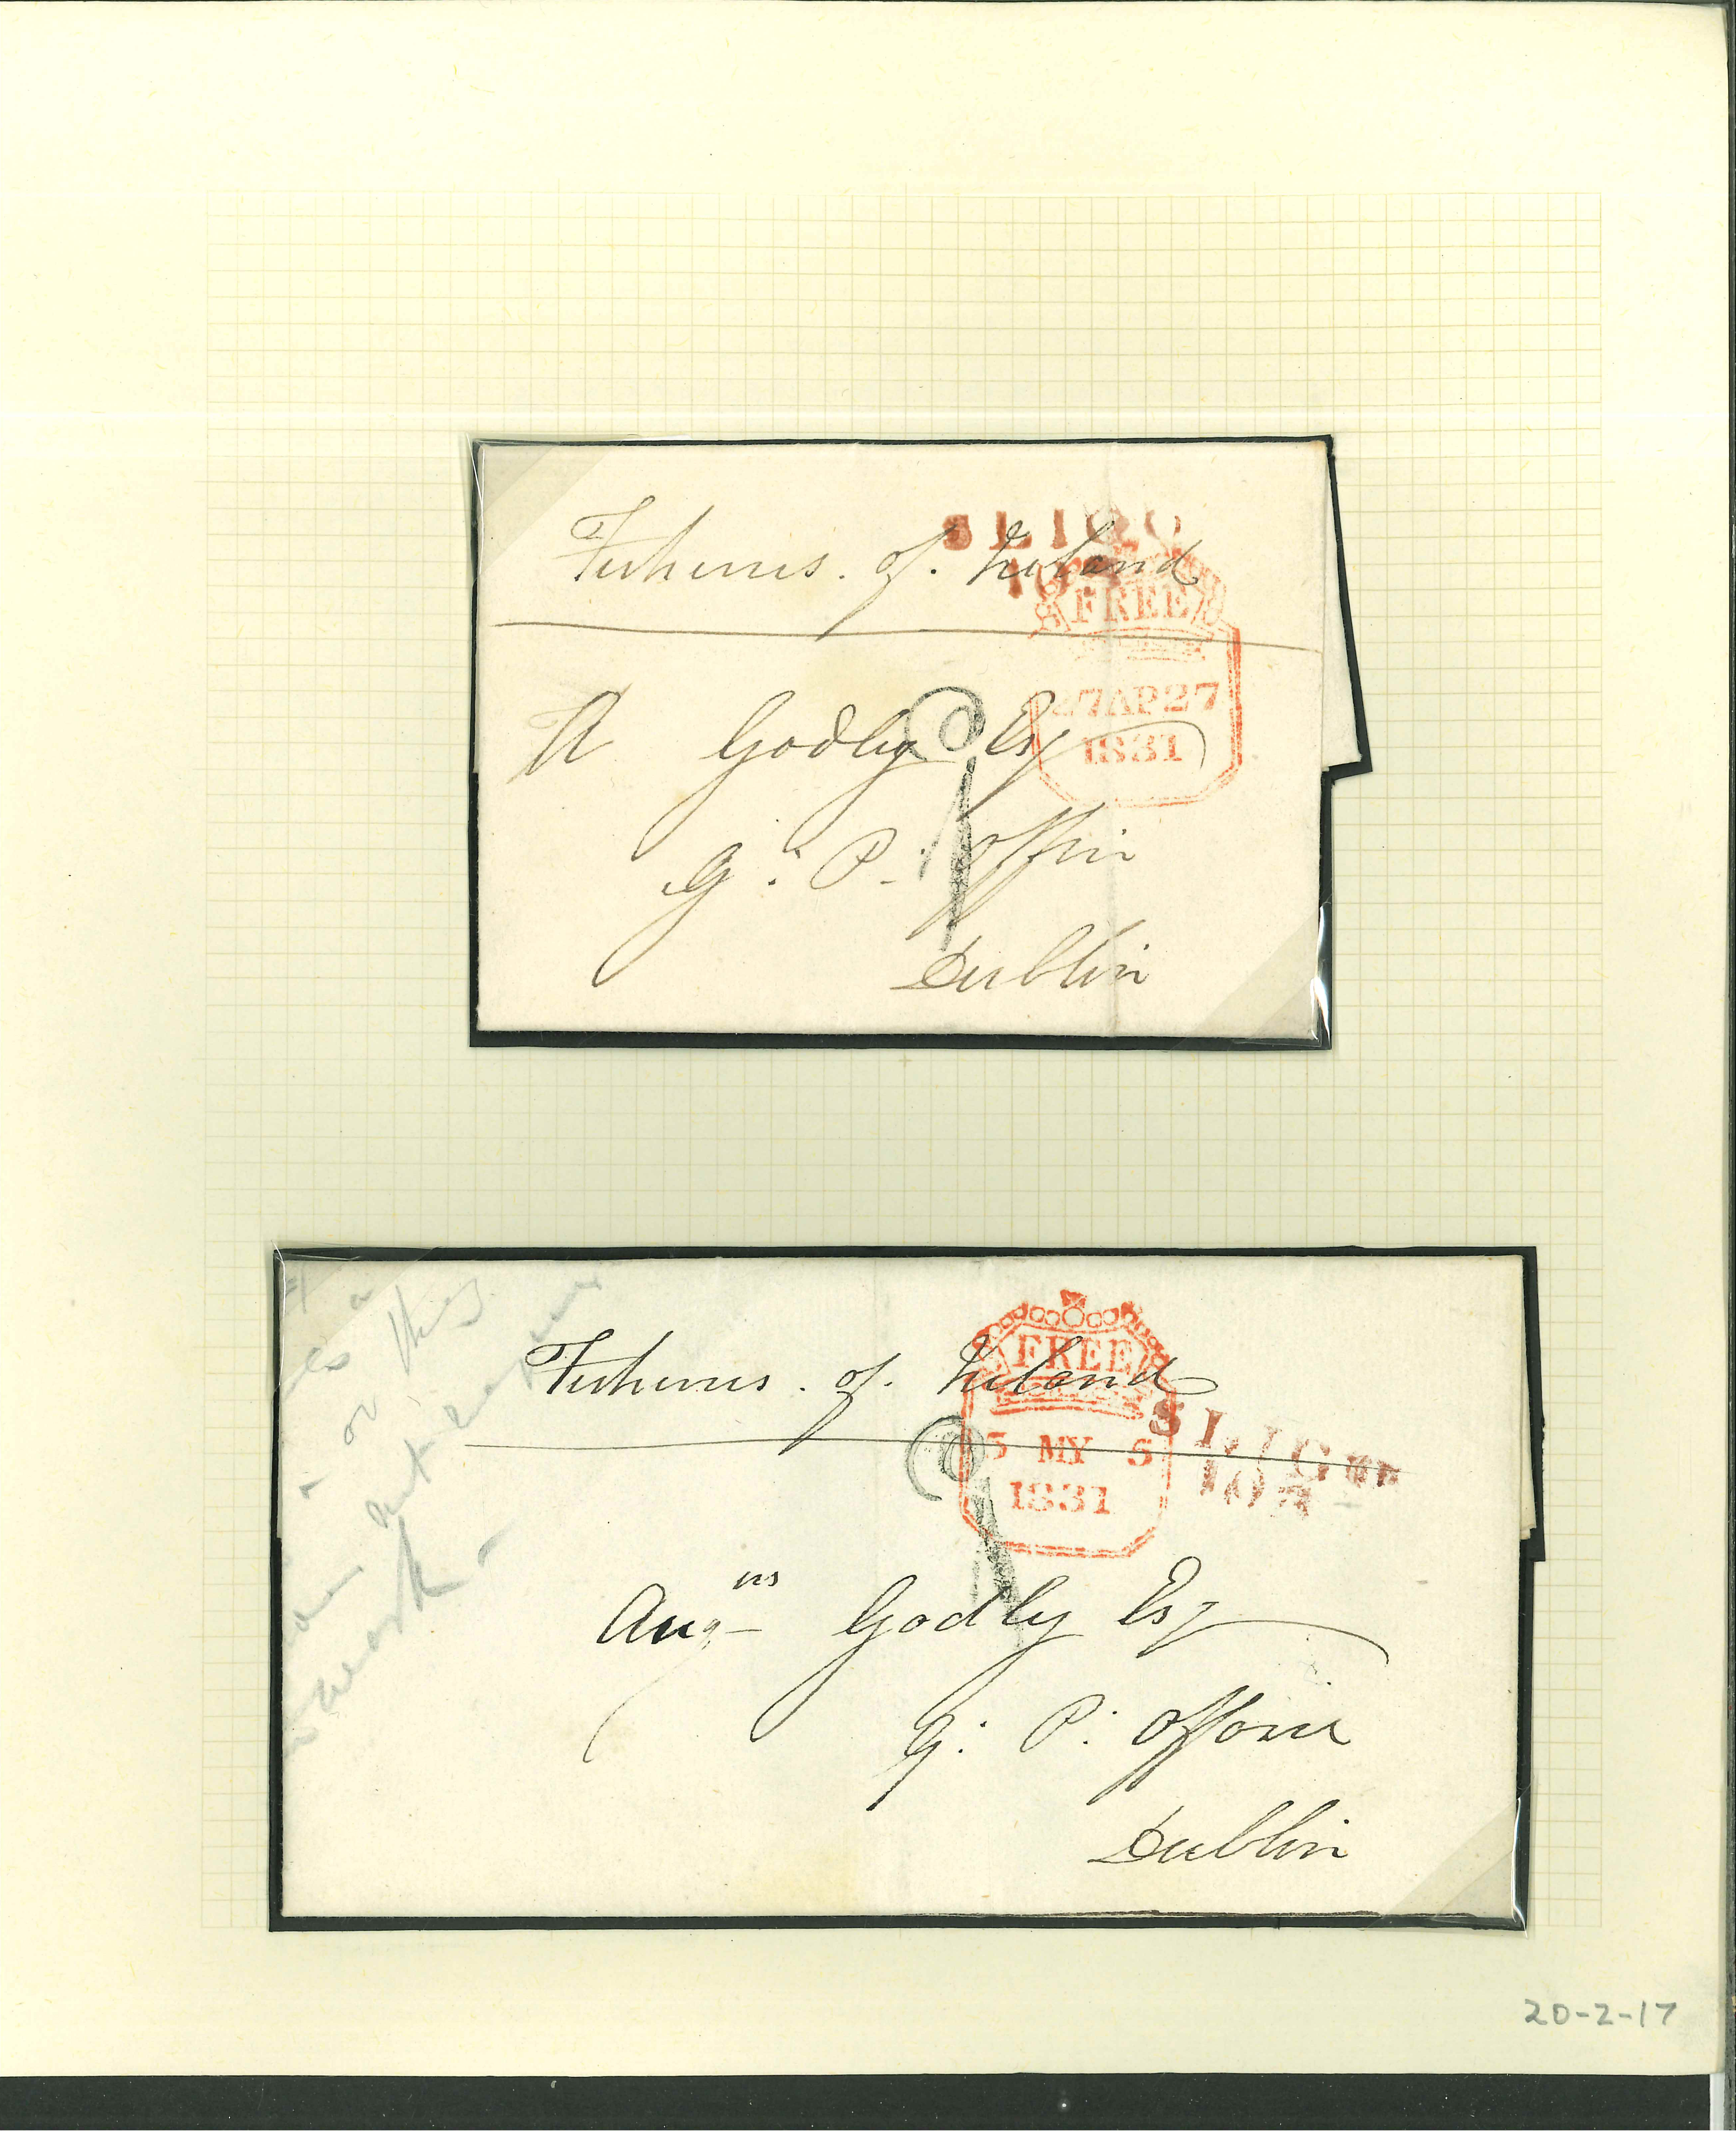 SLIGO
Fisheries. of. Ireland
FREE
27AP27
1831
A Godley Esq
G. P. Office
Dublin
Fisheries. of. Ireland
FREE
5 MY 5
1831
SLIGO
Augus Godley Esq
G. P. Office
Dublin
work -
20-2-17